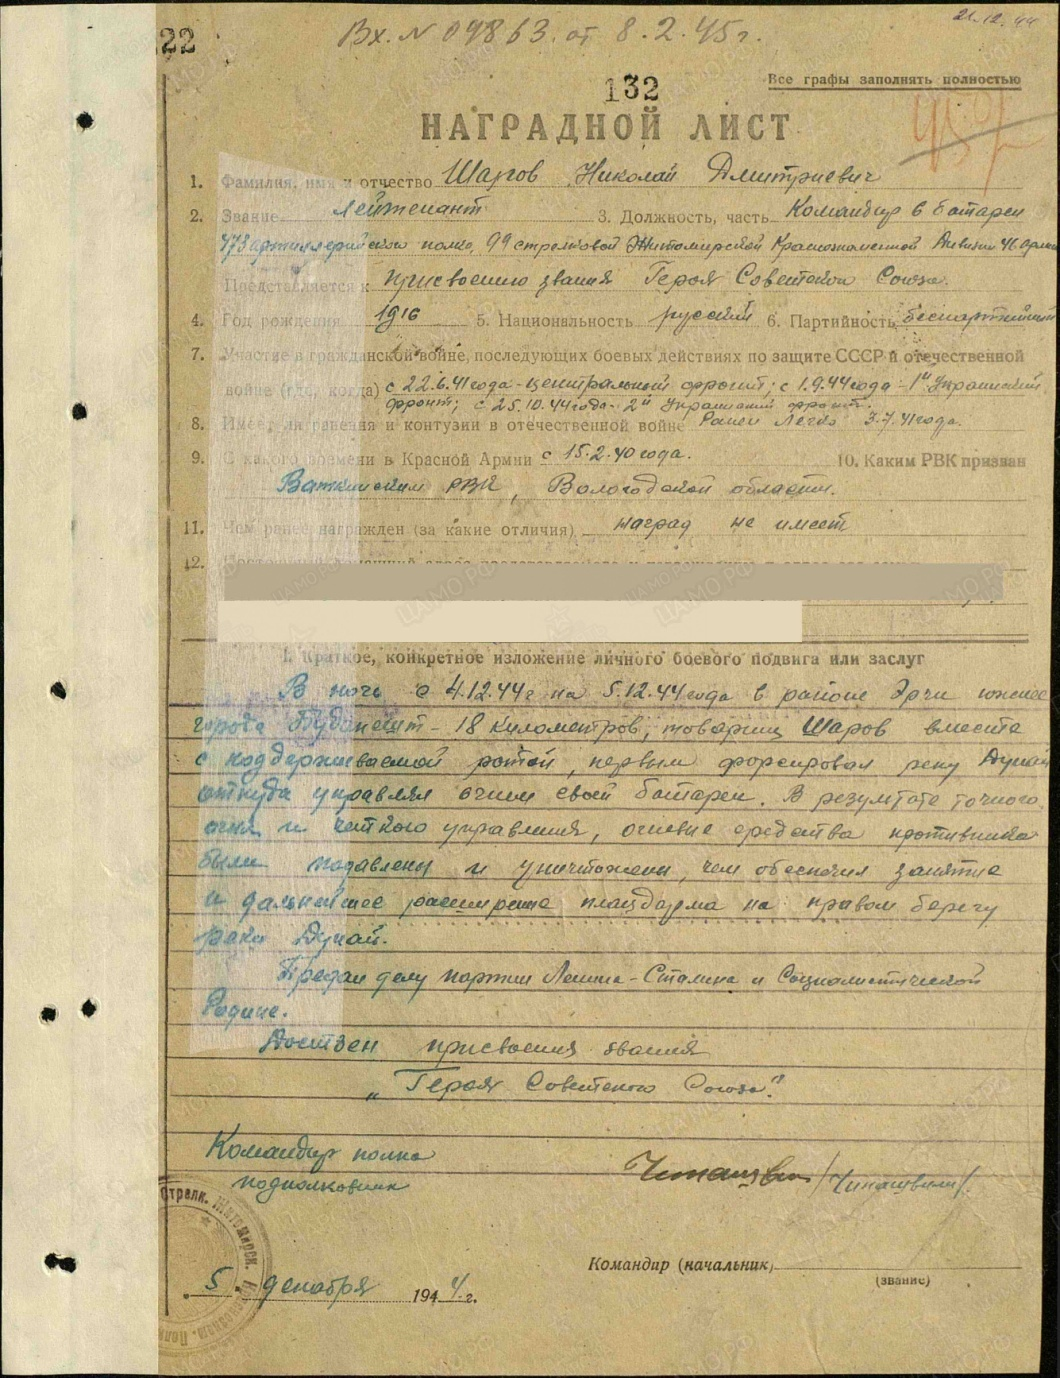 22
Вх. № 09863. от 8.2.45г.
21.12.44
Все графы заполнять полностью
132
НАГРАДНОЙ ЛИСТ
1. Фамилия, имя и отчество Шаров Николай Дмитриевич
2. Звание Лейтенант 3. Должность, часть Командир 6 батареи
473 артиллерийского полка, 99 стрелковой Житомирской Краснознаменной Дивизии 46 армии
Представляется к присвоению звания Героя Советского Союза.
4. Год рождения 1916 5. Национальность русский 6. Партийность беспартийный
7. Участие в гражданской войне, последующих боевых действиях по защите СССР и отечественной
войне (где, когда) с 22.6.41 года - центральный фронт; с 1.9.44 года - 1й Украинский
фронт; с 25.10.44 года - 2й Украинский фронт.
8. Имеет ли ранения и контузии в отечественной войне Ранен Легко 3.7.41 года.
9. С какого времени в Красной Армии с 15.2.40 года. 10. Каким РВК призван
РВК, Вологодской области.
11. Чем ранее награжден (за какие отличия) наград не имеет
12.
I. Краткое, конкретное изложение личного боевого подвига или заслуг
В ночь с 4.12.44г на 5.12.44 года в районе Эрчи южнее
города Будапешт - 18 километров, товарищ Шаров вместе
с поддерживаемой ротой, первым форсировал реку Дунай
откуда управлял огнем своей батареи. В результате точного
огня и четкого управления, огневые средства противника
были подавлены и уничтожены, чем обеспечил занятие
и дальнейшее расширение плацдарма на правом берегу
реки Дунай.
Предан делу партии Ленина-Сталина и Социалистической
Родине.
Достоен присвоения звания
„Героя Советского Союза".
Командир полка
подполковник /Чинашвили/
Стрелк. Житомирск. Краснознам.
Командир (начальник)
(звание)
5. декабря 1944 г.